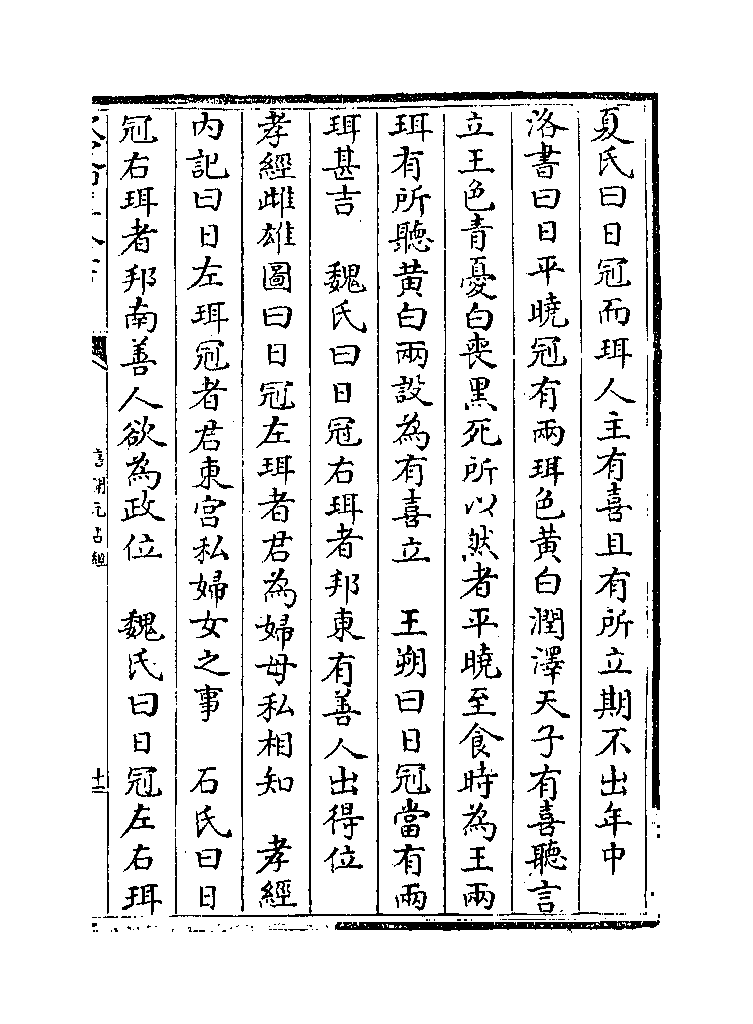 夏氏曰日冠而珥人主有喜且有所立期不出年中
洛書曰日平曉冠有兩珥色黃白潤澤天子有喜聽言
立王色青憂白喪黑死所以然者平曉至食時為王兩
珥有所聽黃白兩設為有喜立　王朔曰日冠當有兩
珥甚吉　魏氏曰日冠右珥者邦東有善人出得位
孝經雌雄圖曰日冠左珥者君為婦母私相知　孝經
內記曰日左珥冠者君東宮私婦女之事　石氏曰日
冠右珥者邦南善人欲為政位　魏氏曰日冠左右珥
唐開元占經
十二